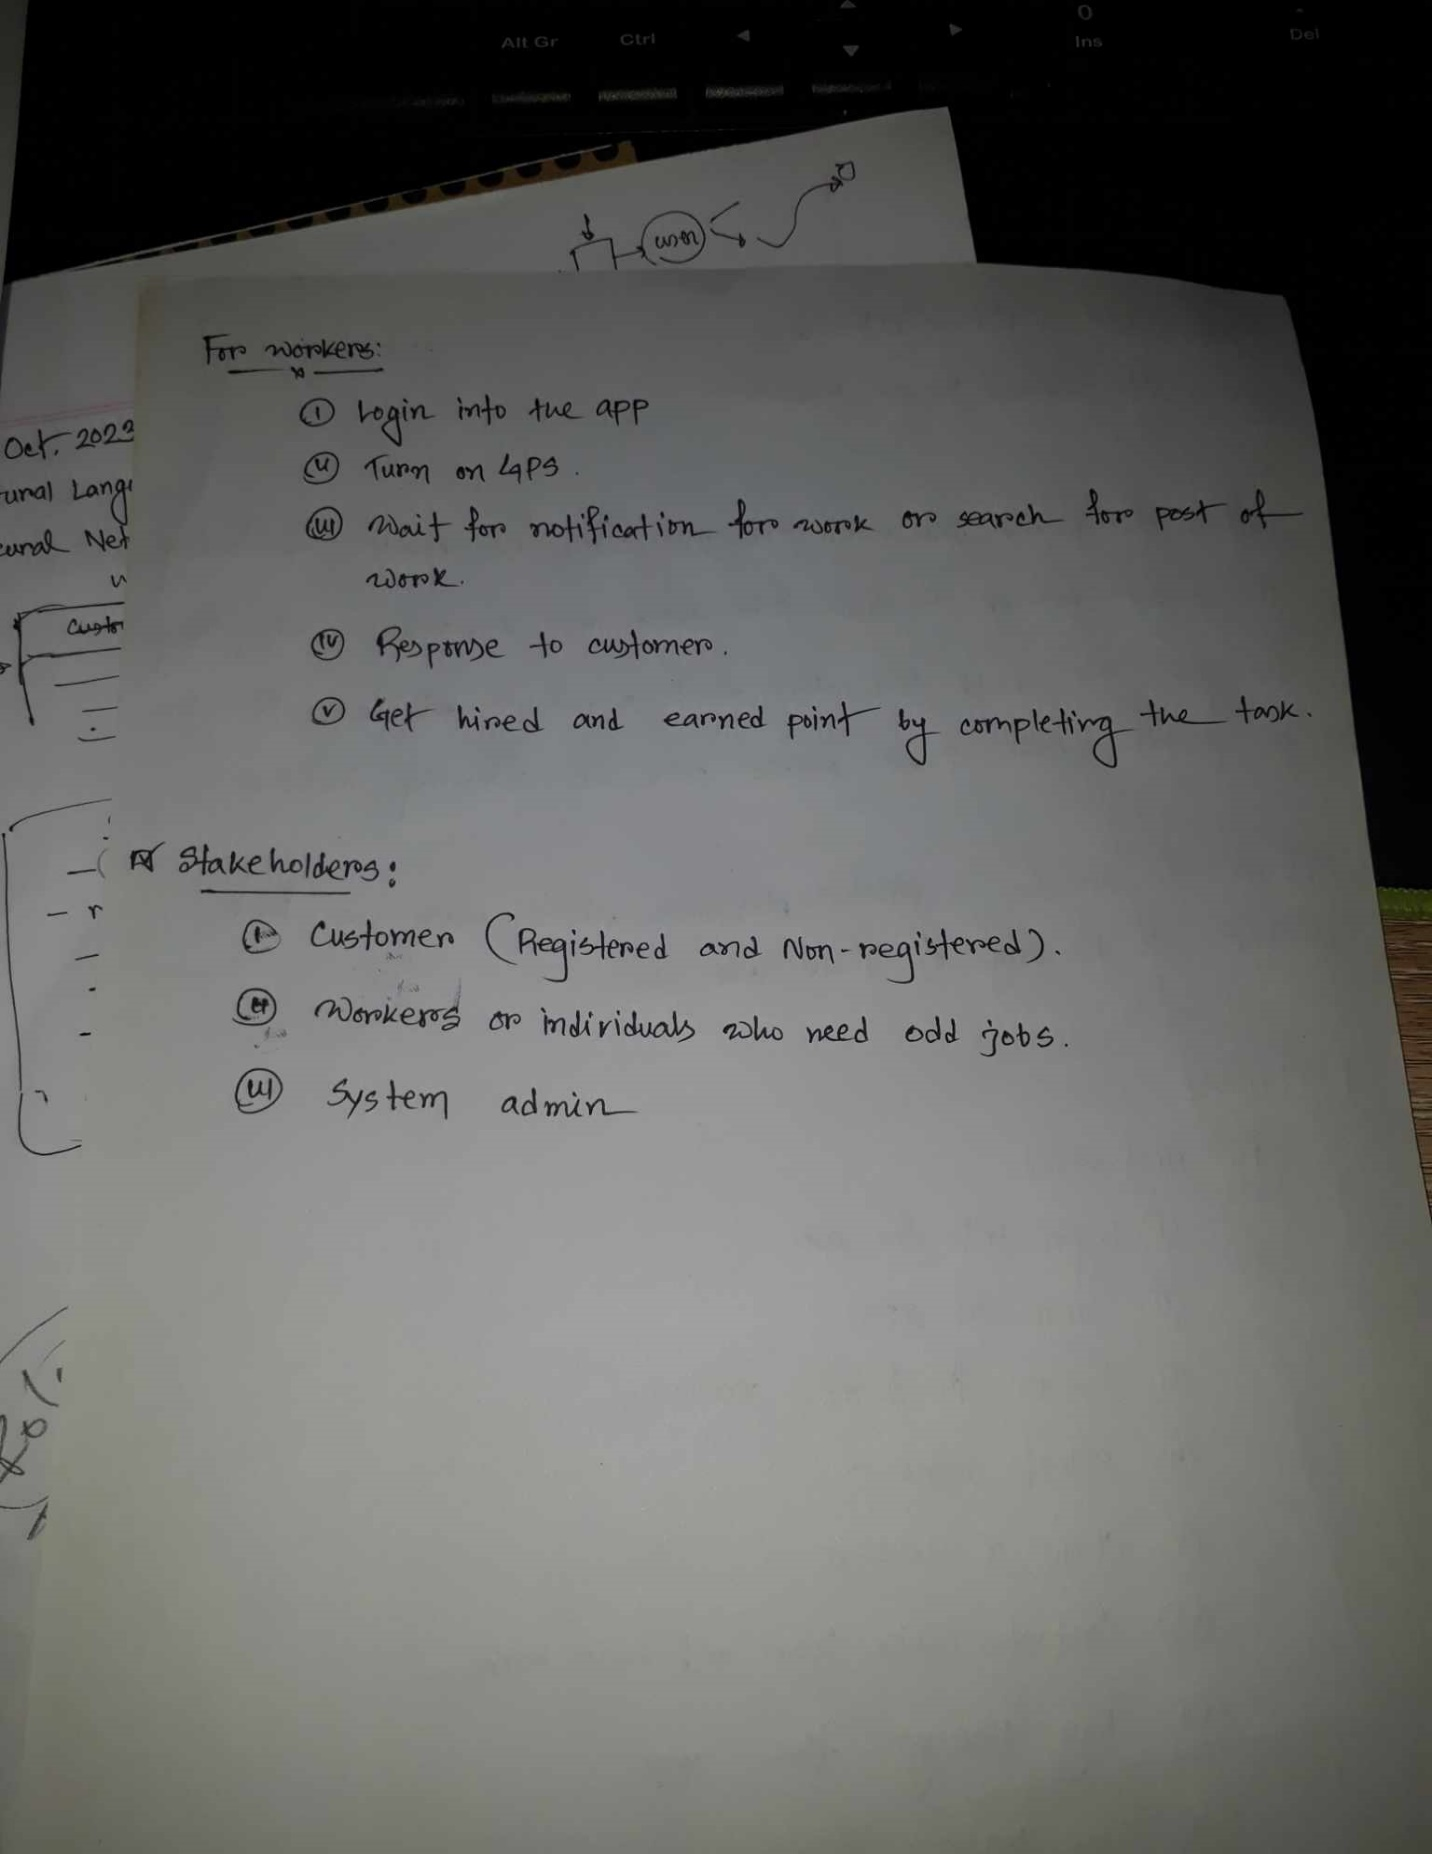 Alt Gr
Ctrl
0
Ins
Del
user
For workers:
(i) Login into the app
(ii) Turn on GPS.
(iii) Wait for notification for work or search for post of
work.
(iv) Response to customer.
(v) Get hired and earned point by completing the task.
Stakeholders:
(i) Customer (Registered and Non-registered).
(ii) Workers or individuals who need odd jobs.
(iii) System admin
Oct. 2023
Net